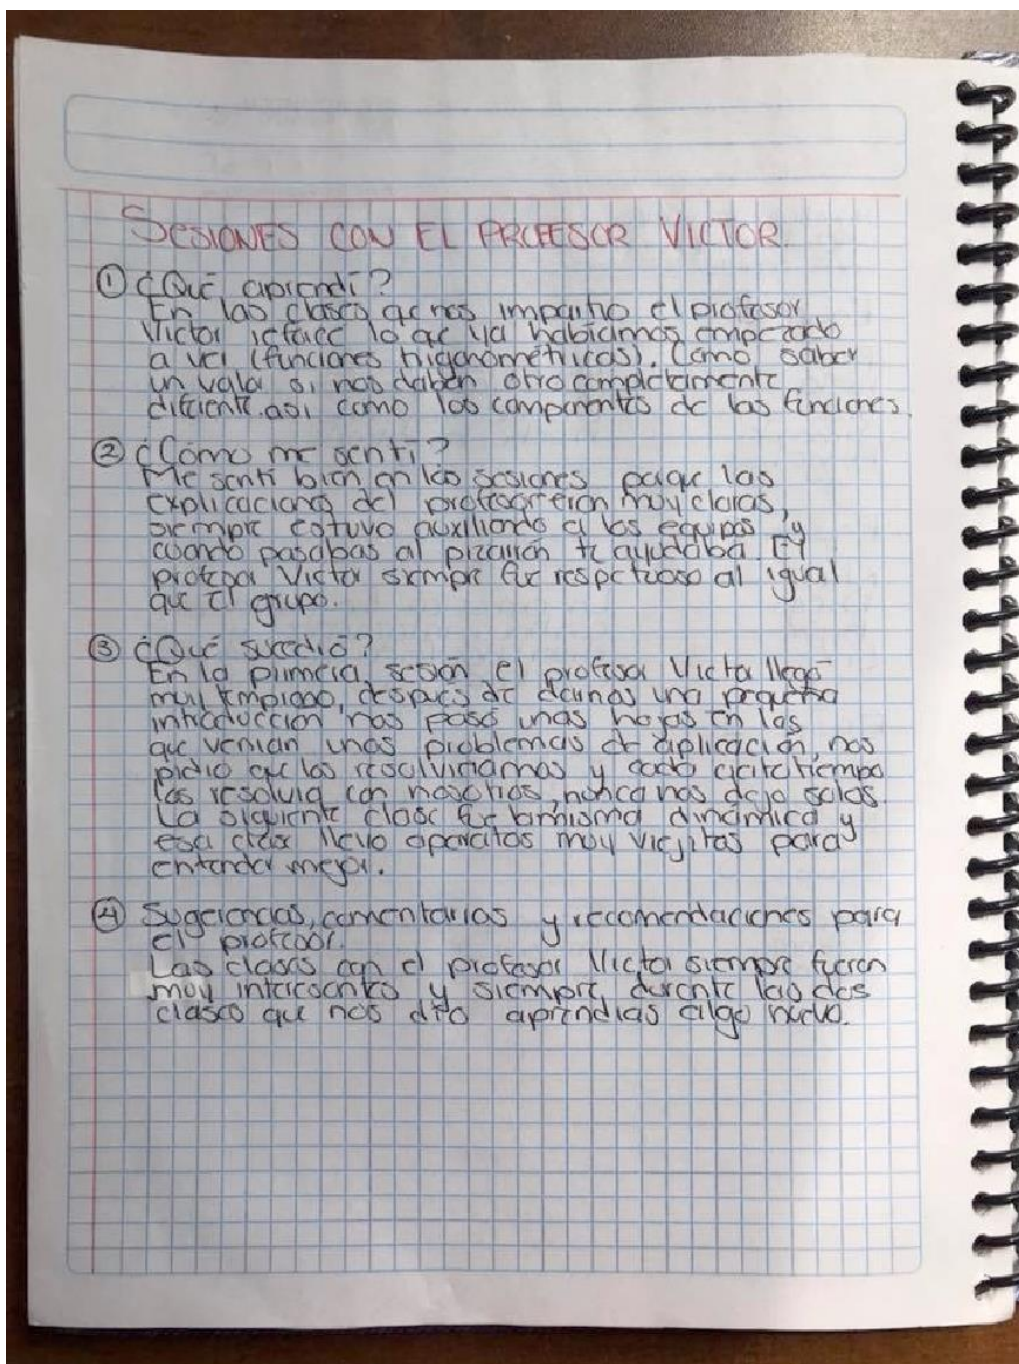 SESIONES CON EL PROFESOR VICTOR.
① ¿Qué aprendí?
En las clases qe nos impartio el profesor
Victor reforce lo qe ya habiamos empezado
a ver (funciones trigonométricas). Como saber
un valor si nos daban otro completamente
diferente asi como los componentes de las funciones.
② ¿Cómo me senti?
Me senti bien en las sesiones porque las
explicaciones del profesor eran muy claras,
siempre estuvo auxiliando a los equipos y
cuando pasabas al pizarrón te ayudaba. El
profesor Victor siempre fue respetuoso al igual
que el grupo.
③ ¿Qué sucedió?
En la primera sesión el profesor Victor llegó
muy temprano, despues de darnos una pequeña
introducción nos pasó unas hojas en las
que venian unos problemas de aplicación, nos
pidio que los resolvieramos y cada cierto tiempo
los resolvia con nosotros, nunca nos dejo solos.
La siguiente clase fue la misma dinámica y
esa clase llevo aparatos muy viejitos para
entender mejor.
④ Sugerencias, comentarios y recomendaciones para
el profesor.
Las clases con el profesor Victor siempre fueron
muy interesantes y siempre durante las dos
clases que nos dio aprendias algo nuevo.